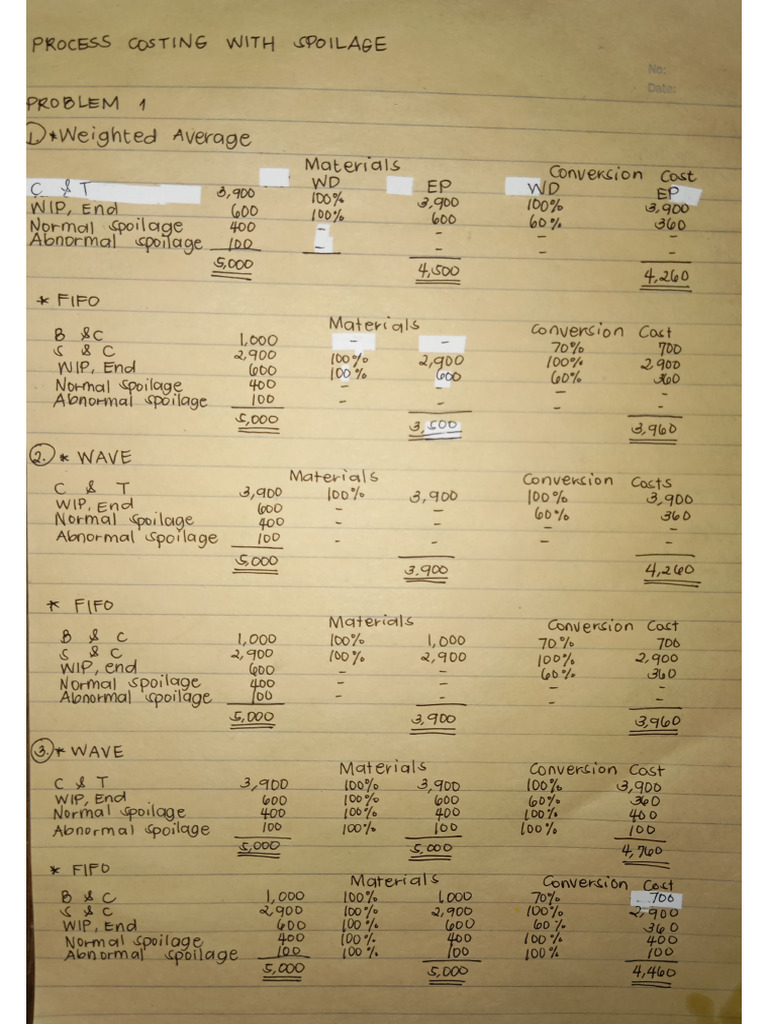 PROCESS COSTING WITH SPOILAGE
No:
Date:
PROBLEM 1
1. * Weighted Average
Materials Conversion Cost
WD EP WD EP
C & T 3,900 100% 3,900 100% 3,900
WIP, End 600 100% 600 60% 360
Normal spoilage 400 - - - -
Abnormal spoilage 100 - - - -
5,000 4,500 4,260
* FIFO
Materials Conversion Cost
B & C 1,000 - - 70% 700
S & C 2,900 100% 2,900 100% 2,900
WIP, End 600 100% 600 60% 360
Normal spoilage 400 - - - -
Abnormal spoilage 100 - - - -
5,000 3,500 3,960
2. * WAVE
Materials Conversion Costs
C & T 3,900 100% 3,900 100% 3,900
WIP, End 600 - - 60% 360
Normal spoilage 400 - - - -
Abnormal spoilage 100 - - - -
5,000 3,900 4,260
* FIFO
Materials Conversion Cost
B & C 1,000 100% 1,000 70% 700
S & C 2,900 100% 2,900 100% 2,900
WIP, end 600 - - 60% 360
Normal spoilage 400 - - - -
Abnormal spoilage 100 - - - -
5,000 3,900 3,960
3. * WAVE
Materials Conversion Cost
C & T 3,900 100% 3,900 100% 3,900
WIP, End 600 100% 600 60% 360
Normal spoilage 400 100% 400 100% 400
Abnormal spoilage 100 100% 100 100% 100
5,000 5,000 4,760
* FIFO
Materials Conversion Cost
B & C 1,000 100% 1,000 70% 700
S & C 2,900 100% 2,900 100% 2,900
WIP, End 600 100% 600 60% 360
Normal spoilage 400 100% 400 100% 400
Abnormal spoilage 100 100% 100 100% 100
5,000 5,000 4,460